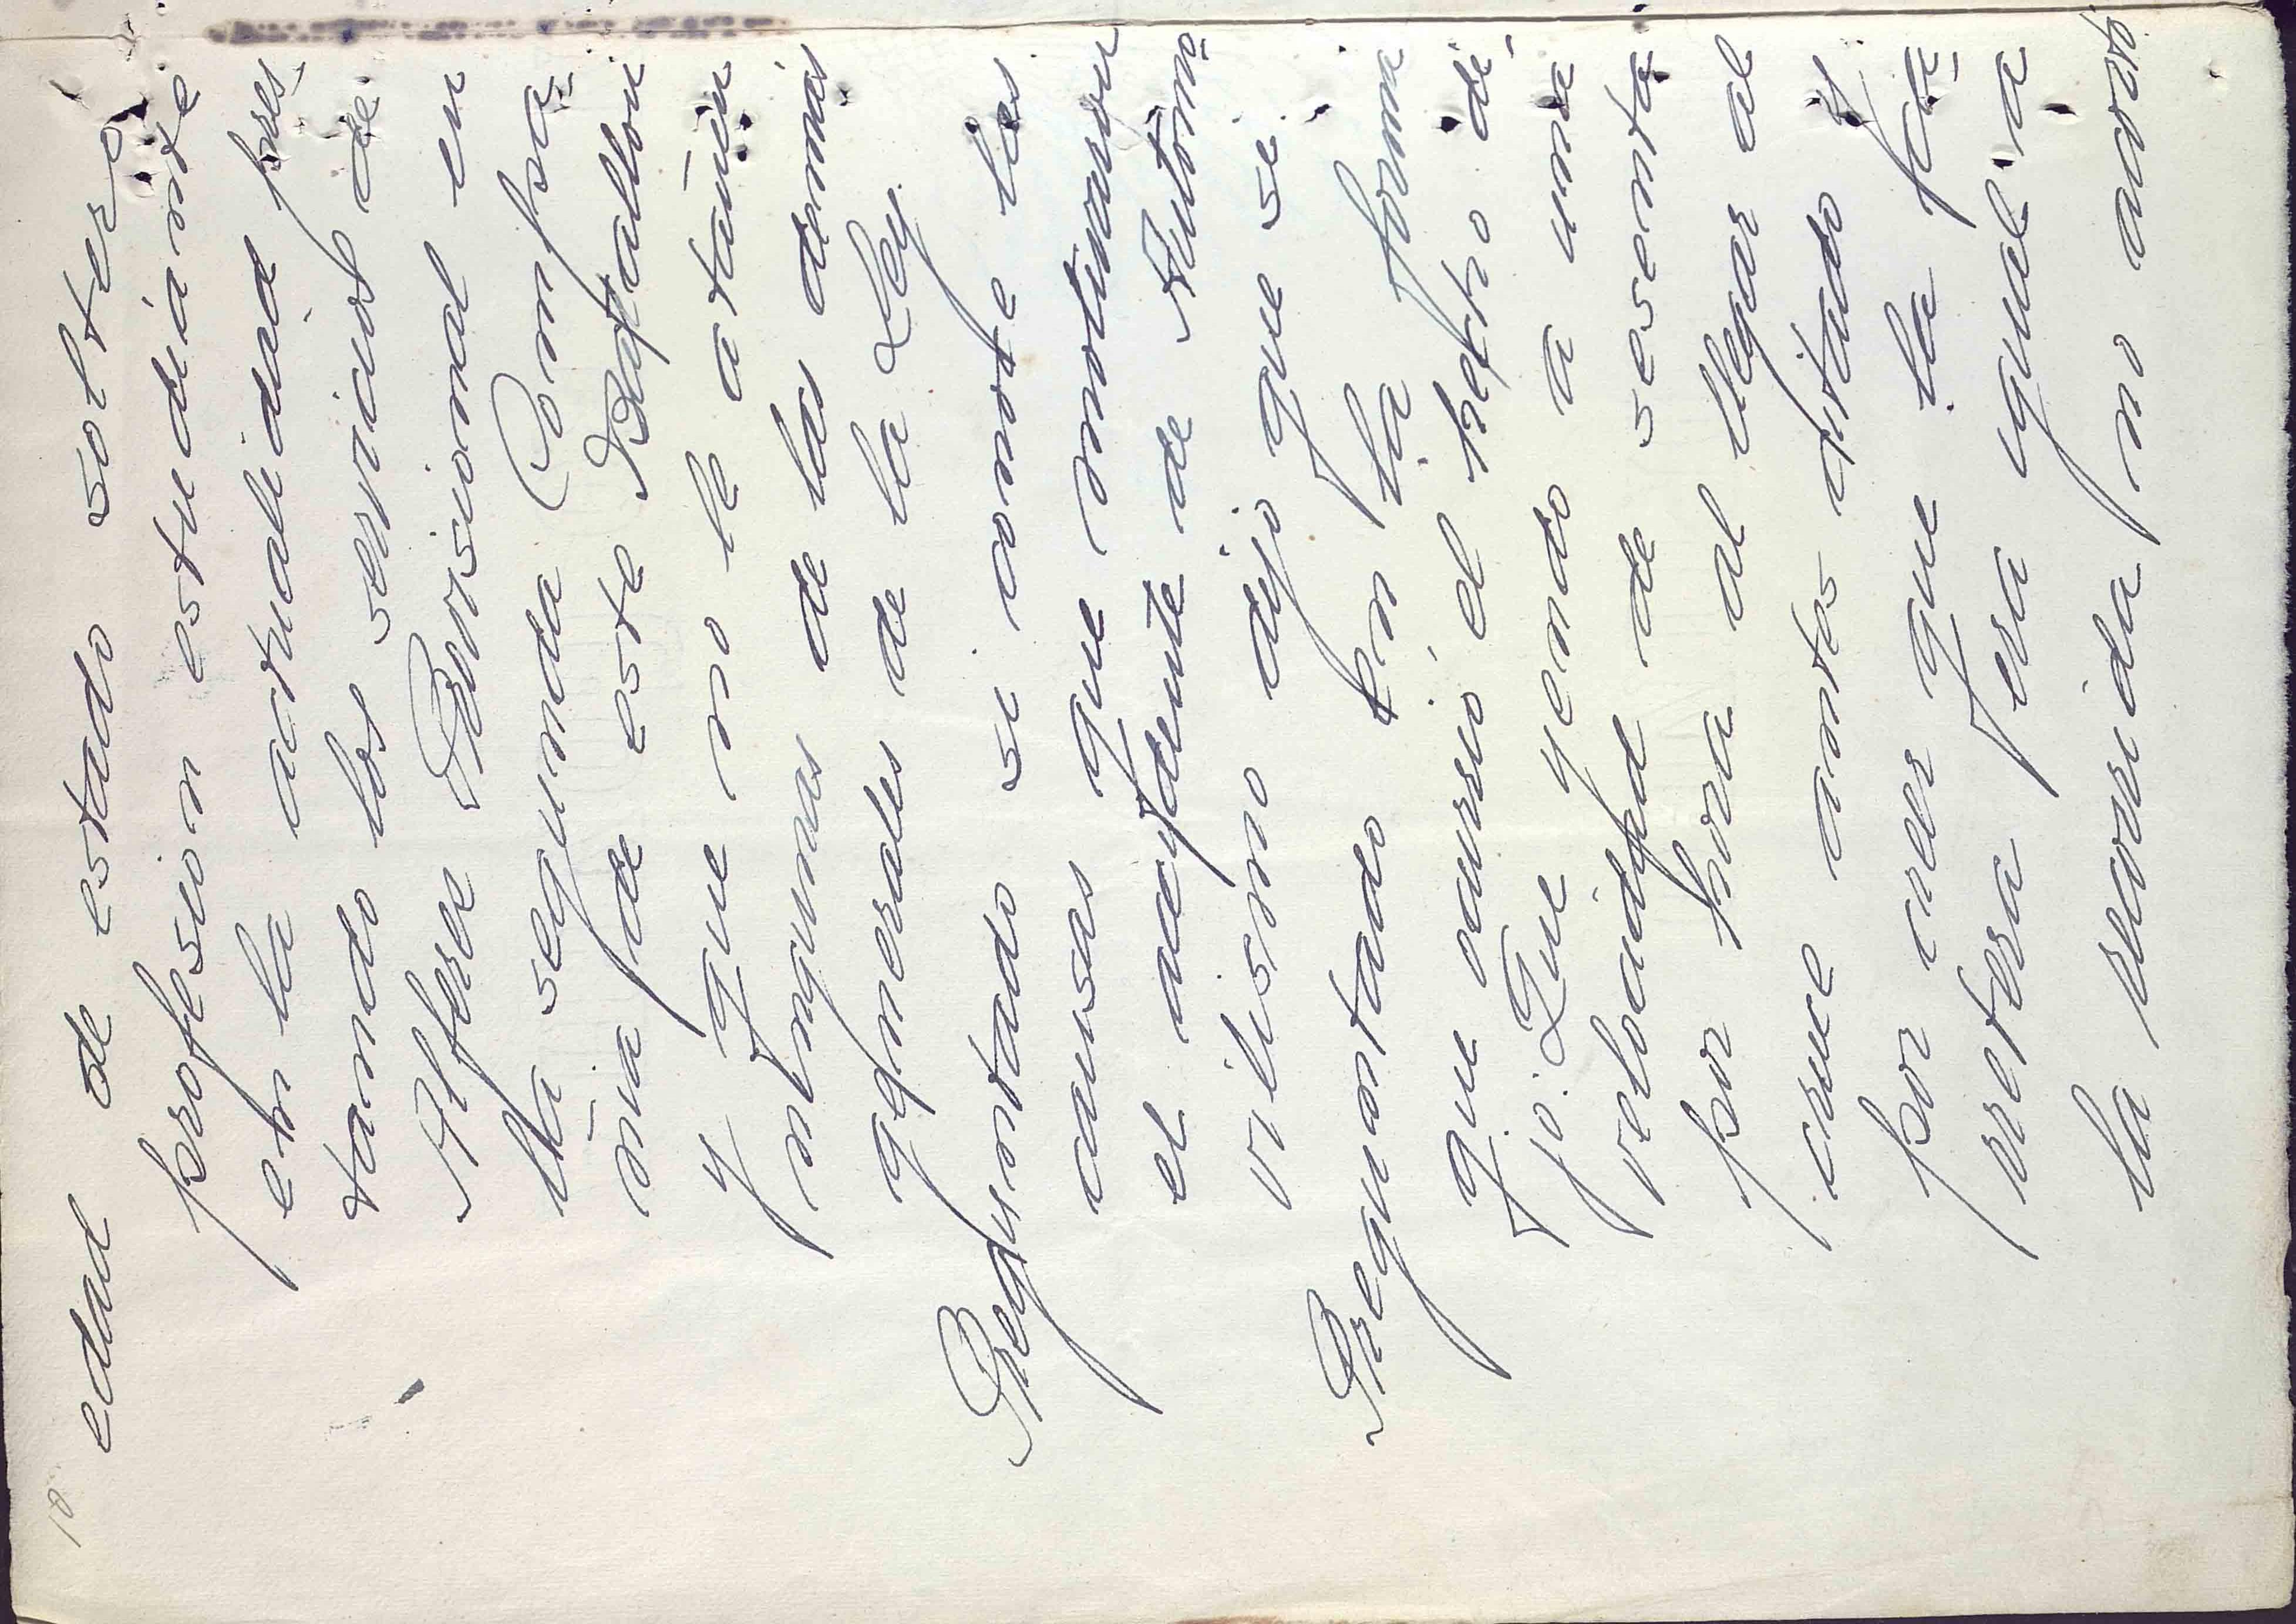 10
edad de estado soltero
profesion estudiante
en la actualidad pres-
tando los servicios de
Alferez Provisional en
la segunda Compa-
ñia de este Batallon
y que no le atañen
ningunas de las demas
generales de la Ley.
Preguntado si conoce las
causas que motivaron
el accidente de Automo-
vilismo dijo que si.
Preguntado en la forma
que ocurrió el hecho di-
jo: Que yendo a una
velocidad de sesenta
por hora al llegar al
cruce antes citado y
por creer que la ca-
rretera era igual a
la recorrida no acortó